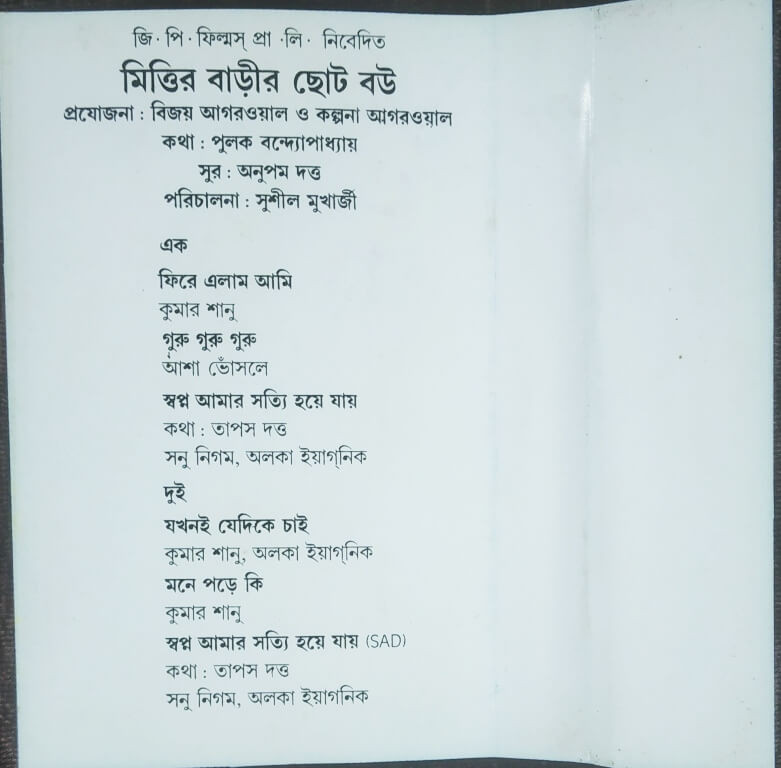 জি · পি · ফিল্মস্ প্রা · লি · নিবেদিত
মিত্তির বাড়ীর ছোট বউ
প্রযোজনা : বিজয় আগরওয়াল ও কল্পনা আগরওয়াল
কথা : পুলক বন্দ্যোপাধ্যায়
সুর : অনুপম দত্ত
পরিচালনা : সুশীল মুখার্জী
এক
ফিরে এলাম আমি
কুমার শানু
গুরু গুরু গুরু
আশা ভোঁসলে
স্বপ্ন আমার সত্যি হয়ে যায়
কথা : তাপস দত্ত
সনু নিগম, অলকা ইয়াগ্‌নিক
দুই
যখনই যেদিকে চাই
কুমার শানু, অলকা ইয়াগ্‌নিক
মনে পড়ে কি
কুমার শানু
স্বপ্ন আমার সত্যি হয়ে যায় (SAD)
কথা : তাপস দত্ত
সনু নিগম, অলকা ইয়াগনিক